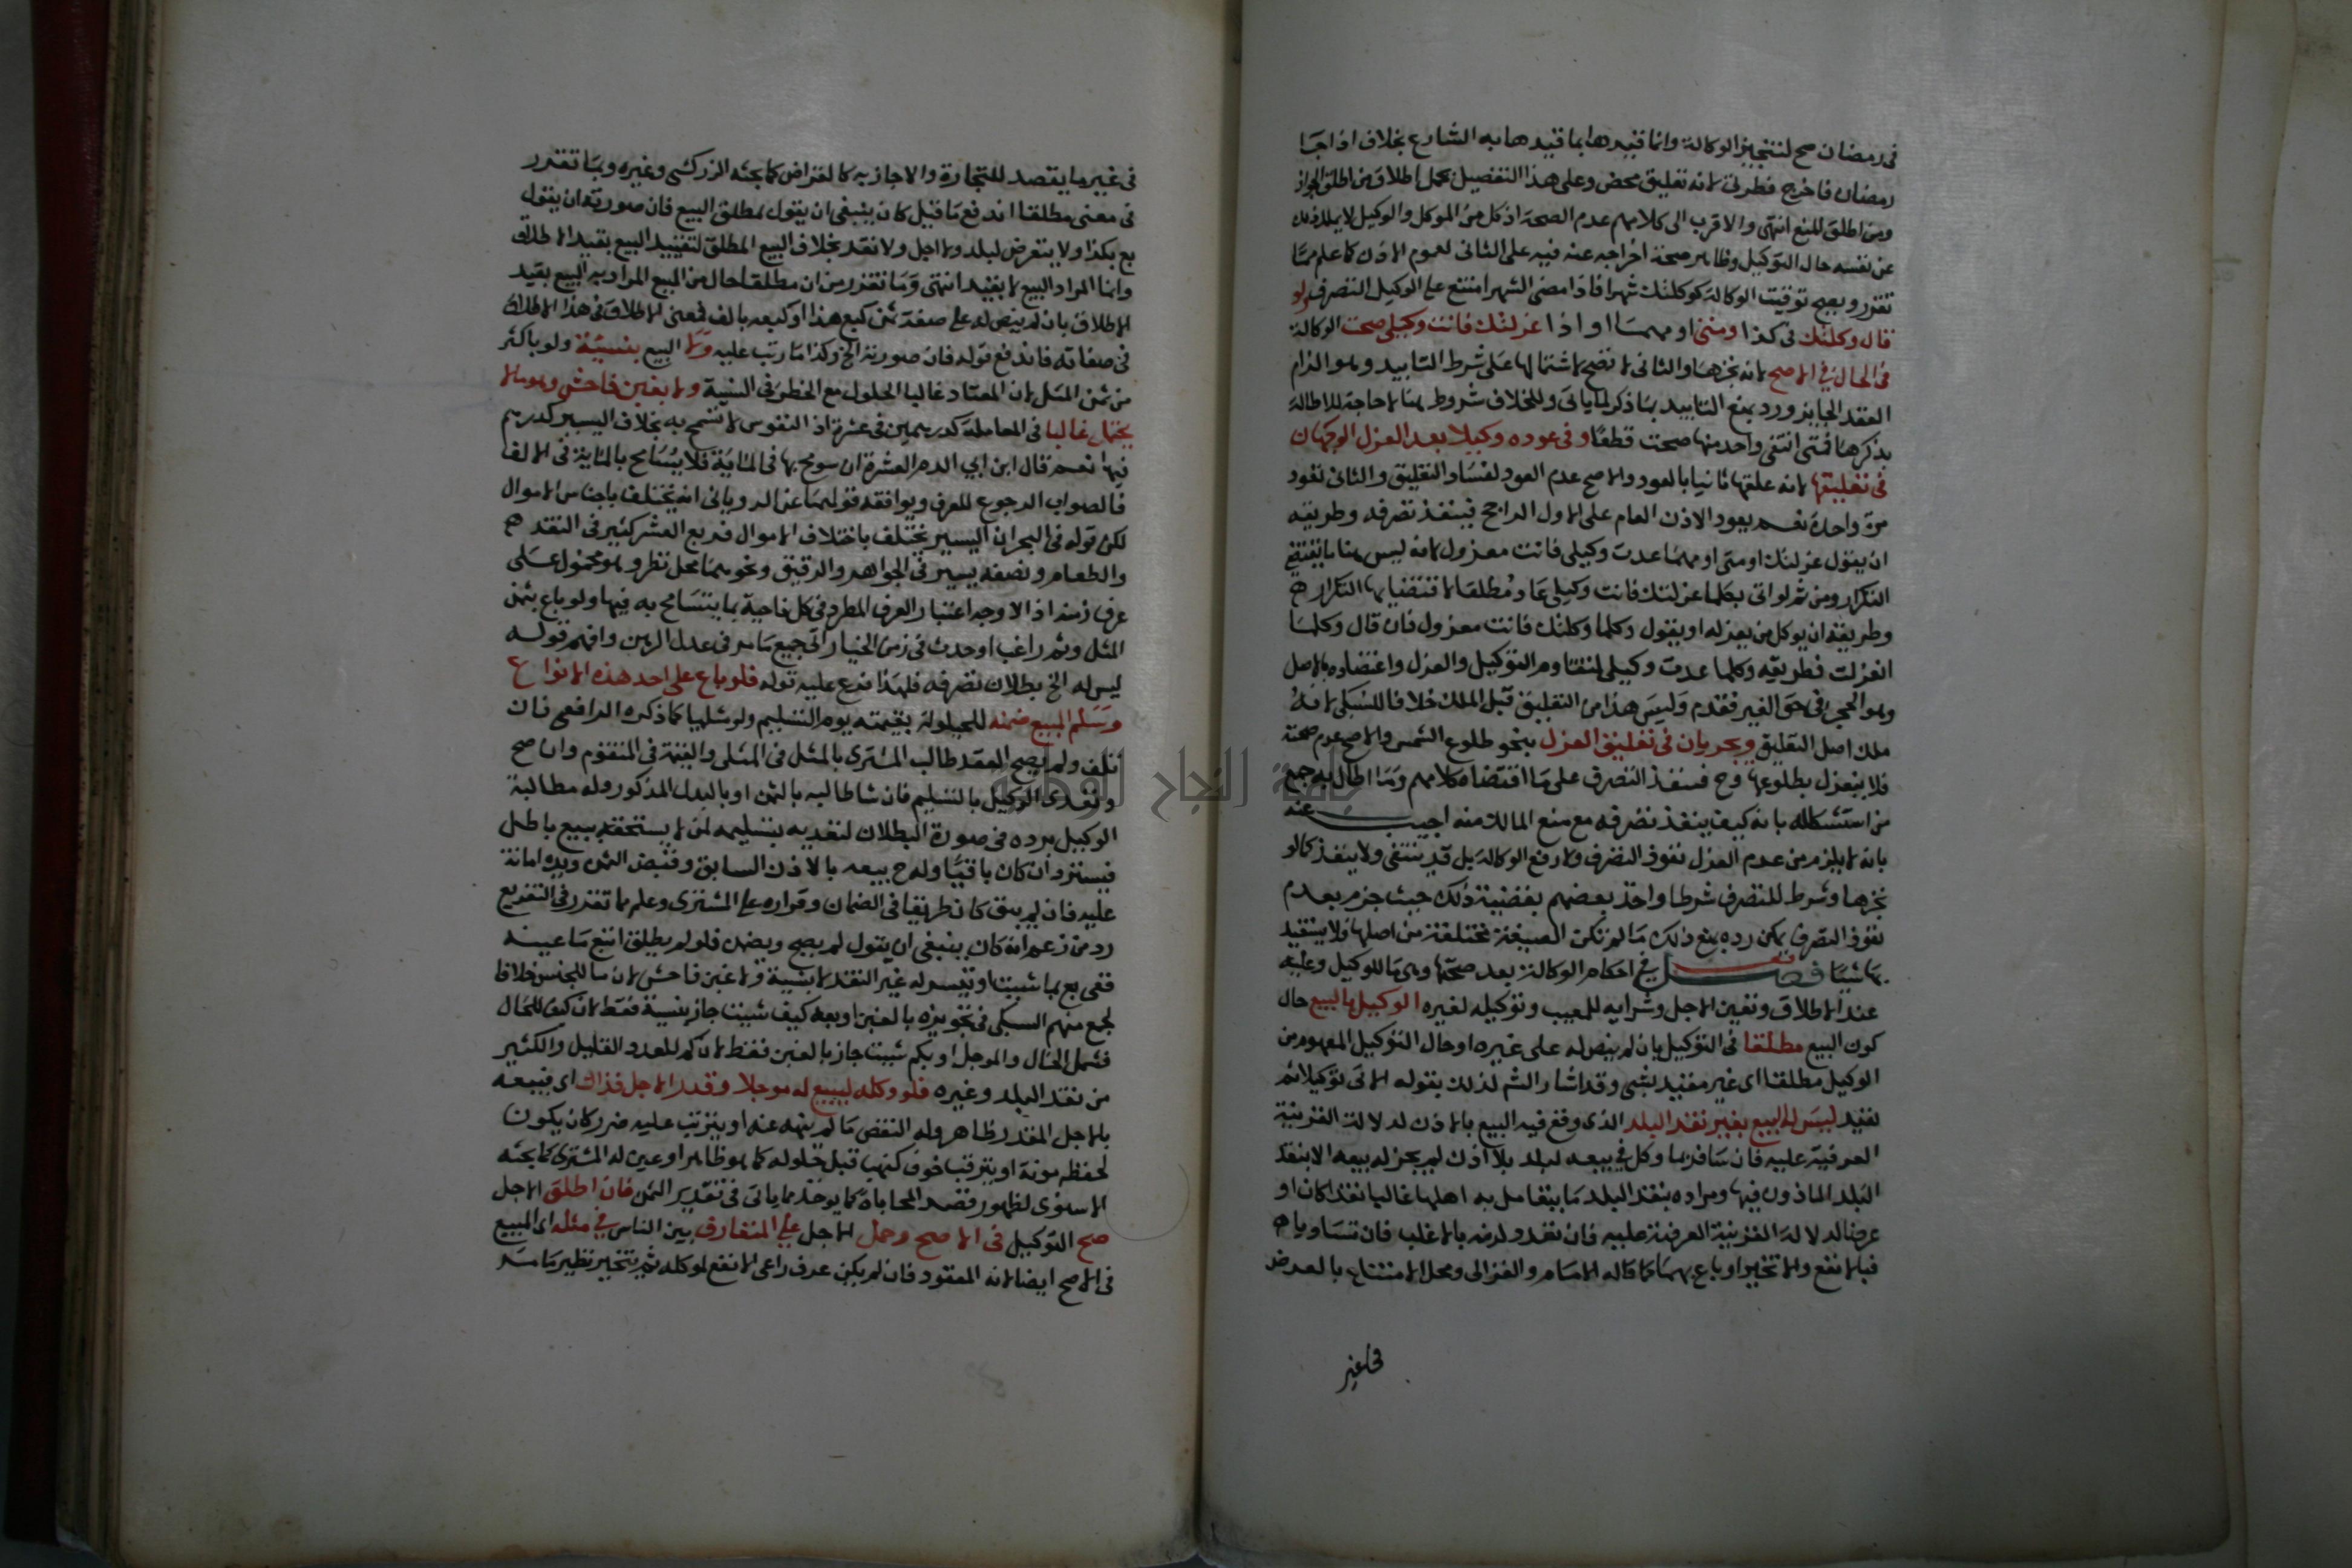 فى رمضان صح لتنجيز الوكالة وانما قيدها بما قيدها به الشارع بخلاف اذا جا
رمضان فاخرج فطرتى لانه تعليق محض وعلى هذا التفصيل يحمل اطلاق من اطلق الجواز
ومن اطلق المنع انتهى والاقرب الى كلامهم عدم الصحة اذ كل من الموكل والوكيل لا يملك ذلك
عن نفسه حال التوكيل وظاهر صحة اخراجه عنه فيه على الثانى لعموم الاذن كما علم مما
تقرر ويصح توقيت الوكالة كوكلتك شهرا فاذا مضى الشهر امتنع على الوكيل التصرف ولو
قال وكلتك فى كذا ومتى او مهما او اذا عزلتك فانت وكيلى صحت الوكالة
فى الحال فى الاصح لانه نجزها والثانى لا تصح لاشتمالها على شرط التابيد وهو الزام
العقد الجايز ورد بمنع التابيد بما ذكر لما ياتى وللخلاف شروط هنا لا حاجة للاطالة
بذكرها فمتى انتفى واحد منها صحت قطعا وفى عوده وكيلا بعد العزل الوجهان
فى تعليقها لانه علقها ثانيا بالعود والاصح عدم العود لفساد التعليق والثانى تعود
مرة واحدة نعم يعود الاذن العام على الاول الراجح فينفذ تصرفه وطريقه
ان يقول عزلتك او متى او مهما عدت وكيلى فانت معزول لانه ليس هنا ما يقتضى
التكرار ومن ثم لو اتى بكلما عزلتك فانت وكيلى عاد مطلقا لاقتضايها التكرار ح
وطريقه ان يوكل من يعزله او يقول وكلما وكلتك فانت معزول فان قال وكلما
انعزلت فطريقه وكلما عدت وكيلى لتقاوم التوكيل والعزل واعتضاده بالاصل
وهو الحجر فى حق الغير فقدم وليس هذا من التعليق قبل الملك خلافا للسبكى لانه
ملك اصل التعليق ويجريان فى تعليق العزل بنحو طلوع الشمس والاصح عدم صحته
فلا ينعزل بطلوعها وح فينفذ التصرف على ما اقتضاه كلامهم وما اطال به جمع
من استشكاله بانه كيف ينفذ تصرفه مع منع المالك منه اجيب عنه
بانه لا يلزم من عدم العزل نفوذ التصرف ولا رفع الوكالة بل قد ينتفى ولا ينفذ كما لو
نجزها وشرط للتصرف شرطا واخذ بعضهم بقضية ذلك حيث جزم بعدم
نفوذ التصرف يمكن رده بمنع ذلك ما لم تكن الصيغة مختلفة من اصلها فلا يتقيد
بها شيئا فصل فى احكام الوكالة بعد صحتها وهى ما للوكيل وعليه
عند الاطلاق وتعين الاجل وشرايه للمعيب وتوكيله لغيره الوكيل بالبيع حال
كون البيع مطلقا فى التوكيل بان لم ينص له على غيره او حال التوكيل المفهوم من
الوكيل مطلقا اى غير مقيد بشى وقد اشار الشم لذلك بقوله الاتى توكيلا لم
يقيد ليس له البيع بغير نقد البلد الذى وقع فيه البيع بالاذن لدلالة القرينة
العرفية عليه فان سافر بما وكل فى بيعه لبلد بلا اذن لم يجز له بيعه الا بنقد
البلد الماذون فيها ومراده بنقد البلد ما يتعامل به اهلها غالبا نقدا كان او
عرضا لدلالة القرينة العرفية عليه فان تعدد لزمه بالاغلب فان تساويا ح
فبالانفع والا تخير او باع بهما كما قاله الامام والغزالى ومحل الامتناع بالعرض
فى غير
فى غير ما يقصد للتجارة والا جاز به كالقراض كما بحثه الزركشى وغيره وبما تقرر
فى معنى مطلقا اندفع ما قيل كان ينبغى ان يقول بمطلق البيع فان صورته ان يقول
بع بكذا ولا يتعرض لبلد ولا اجل ولا نقد بخلاف البيع المطلق لتقييد البيع بقيد الاطلاق
وانما المراد البيع لا بقيد انتهى وما تقرر من ان مطلقا حال من المبيع المراد به البيع بقيد
الاطلاق بان لم ينص له على صفة ثمن كبع هذا او كبعه بالف فمعنى الاطلاق فى هذا الاطلاق
فى صفاته فاندفع قوله فان صورته الخ وكذا ما رتب عليه ولا البيع بنسيئة ولو باكثر
من ثمن المثل لان المعتاد غالبا الحلول مع الخطر فى النسية ولا بغبن فاحش وهو ما لا
يحتمل غالبا فى المعاملة كدرهمين فى عشرة اذ النفوس لا تشح به بخلاف اليسير كدرهم
فيها نعم قال ابن ابى الدم العشرة ان سومح بها فى الماية فلا يتسامح بالماية فى الالف
فالصواب الرجوع للعرف ويوافقه قولهما عن الرويانى انه يختلف باجناس الاموال
لكن قوله فى البحر ان اليسير يختلف باختلاف الاموال فربع العشر كثير فى النقد ح
والطعام ونصفه يسير فى الجواهر والرقيق ونحوهما محل نظر وهو محمول على
عرف زمنه اذ الاوجه اعتبار العرف المطرد فى كل ناحية بما يتسامح به فيها ولو باع بثمن
المثل وثم راغب او حدث فى زمن الخيار اتى جميع ما مر فى عدل الرهن وافهم قوله
ليس له الخ بطلان تصرفه فلهذا فرع عليه قوله فلو باع على احد هذه الانواع
وسلم المبيع ضمنه للحيلولة بقيمته يوم التسليم ولو مثليا كما ذكره الرافعى فان
تلف ولم يصح العقد طالب المشترى بالمثل فى المثلى والقيمة فى المتقوم وان صح
وتعدى الوكيل بالتسليم فان شا طالبه بالثمن او بالبدل المذكور وله مطالبة
الوكيل برده فى صورة البطلان لتعديه بتسليمه لمن لا يستحقه ببيع باطل
فيسترد ان كان باقيا وله ح بيعه بالاذن السابق وقبض الثمن ويده امانة
عليه فان لم يبق كان طريقا فى الضمان وقراره على المشترى وعلم مما تقرر فى التفريع
رد من زعم انه كان ينبغى ان يقول لم يصح ويضمن فلو لم يطلق اتبع ما عينه
ففى بع بما شيت او تيسر له غير النقد لا بنسية ولا غبن فاحش لان ما للجنس خلافا
لجمع منهم السبكى فى تجويزه بالغبن او بعه كيف شيت جاز بنسية فقط لان كيف للحال
فشمل الحال والموجل او بكم شيت جاز بالغبن فقط لان كم للعدد القليل والكثير
من نقد البلد وغيره فلو وكله ليبيع له موجلا وقدر الاجل فذاك اى فيبيعه
بالاجل المقدر ظاهر وله النقص ما لم ينهه عنه او يترتب عليه ضرر كان يكون
لحفظه مونة او يترقب خوف كنهب قبل حلوله كما هو ظاهر او عين له المشترى كما بحثه
الاسنوى لظهور قصد المحاباة كما يوخذ مما ياتى فى تقدير الثمن فان اطلق الاجل
صح التوكيل فى الاصح وحمل الاجل على المتعارف بين الناس فى مثله اى المبيع
فى الاصح ايضا لانه المعهود فان لم يكن عرف راعى الانفع لموكله ثم يتخير نظير ما مر
جامعة النجاح الوطنية